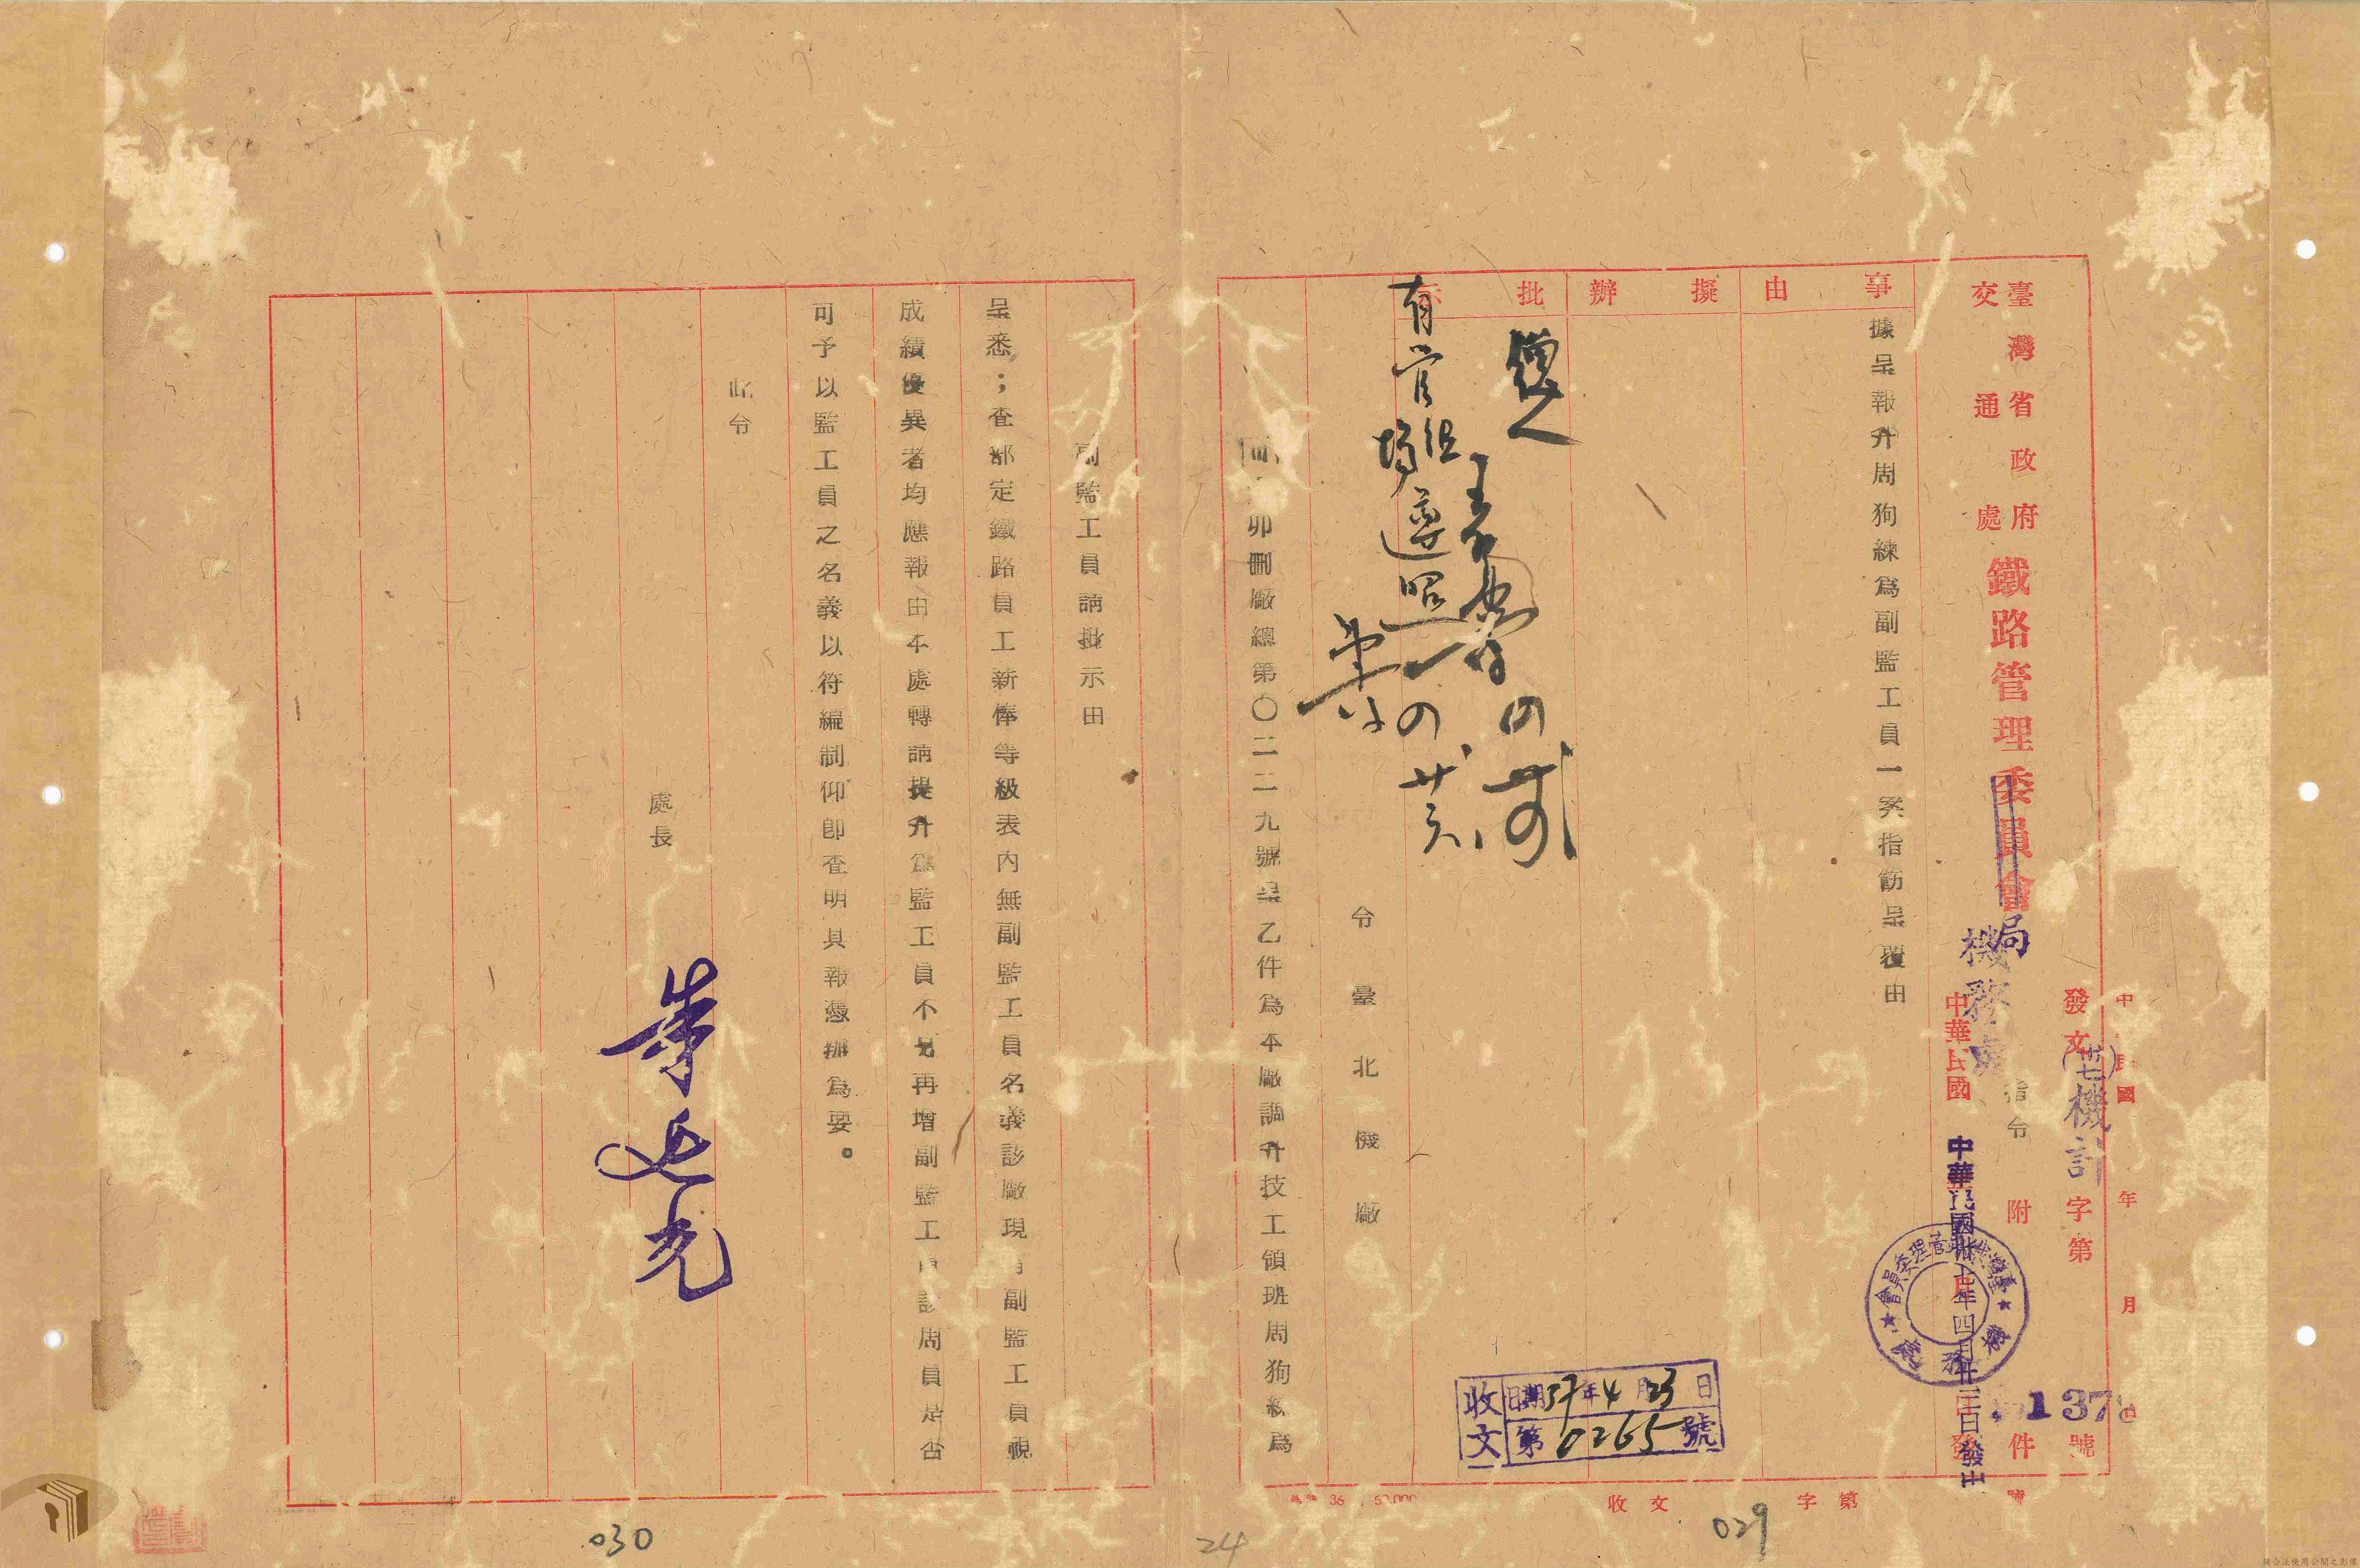 中民國 年 月 日
發文(卅七)機計字第1378號
臺灣省政府
交通處
鐵路管理委員會
局
機務處
指令 附 件
中華民國
中華民國卅七年四月廿三日發出
臺灣鐵路管理委員會 機務處
事由
據呈報升周狗練為副監工員一案指飭呈覆由
擬辦
批示
總
王
四
有官
組
場遵照
四
令臺北機廠
卯 廠總第〇二二九號呈乙件為本廠調升技工領班周狗練為
收文 日期37年4月23日
第0265號
收文 字第 號
36 50,000
029
24
副監工員請批示由
呈悉；查部定鐵路員工新俸等級表內無副監工員名義該廠現有副監工員視
成績優異者均應報由本處轉請提升為監工員不必再增副監工員該周員是否
可予以監工員之名義以符編制仰即查明具報憑辦為要。
此令
處長
030